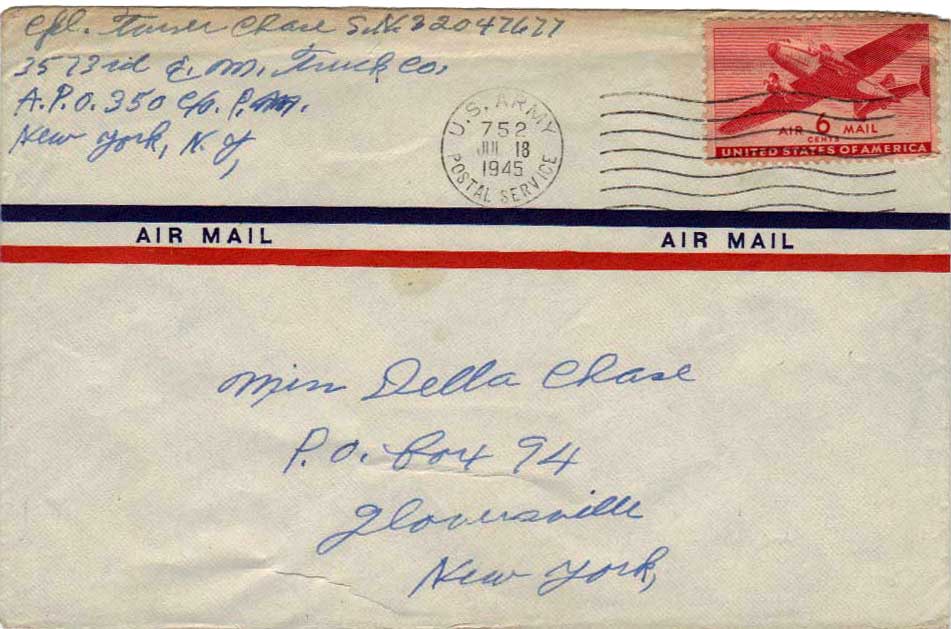 Cpl. Turner Chase S.N. 32047677
3573rd Q. M. Truck Co.
A.P.O. 350 c/o. P.M.
New York, N.Y,
U.S. ARMY
752
JUL 18
1945
POSTAL SERVICE
AIR 6 MAIL
CENTS
UNITED STATES OF AMERICA
AIR MAIL AIR MAIL
Miss Della Chase
P.O. Box 94
Gloversville
New York,